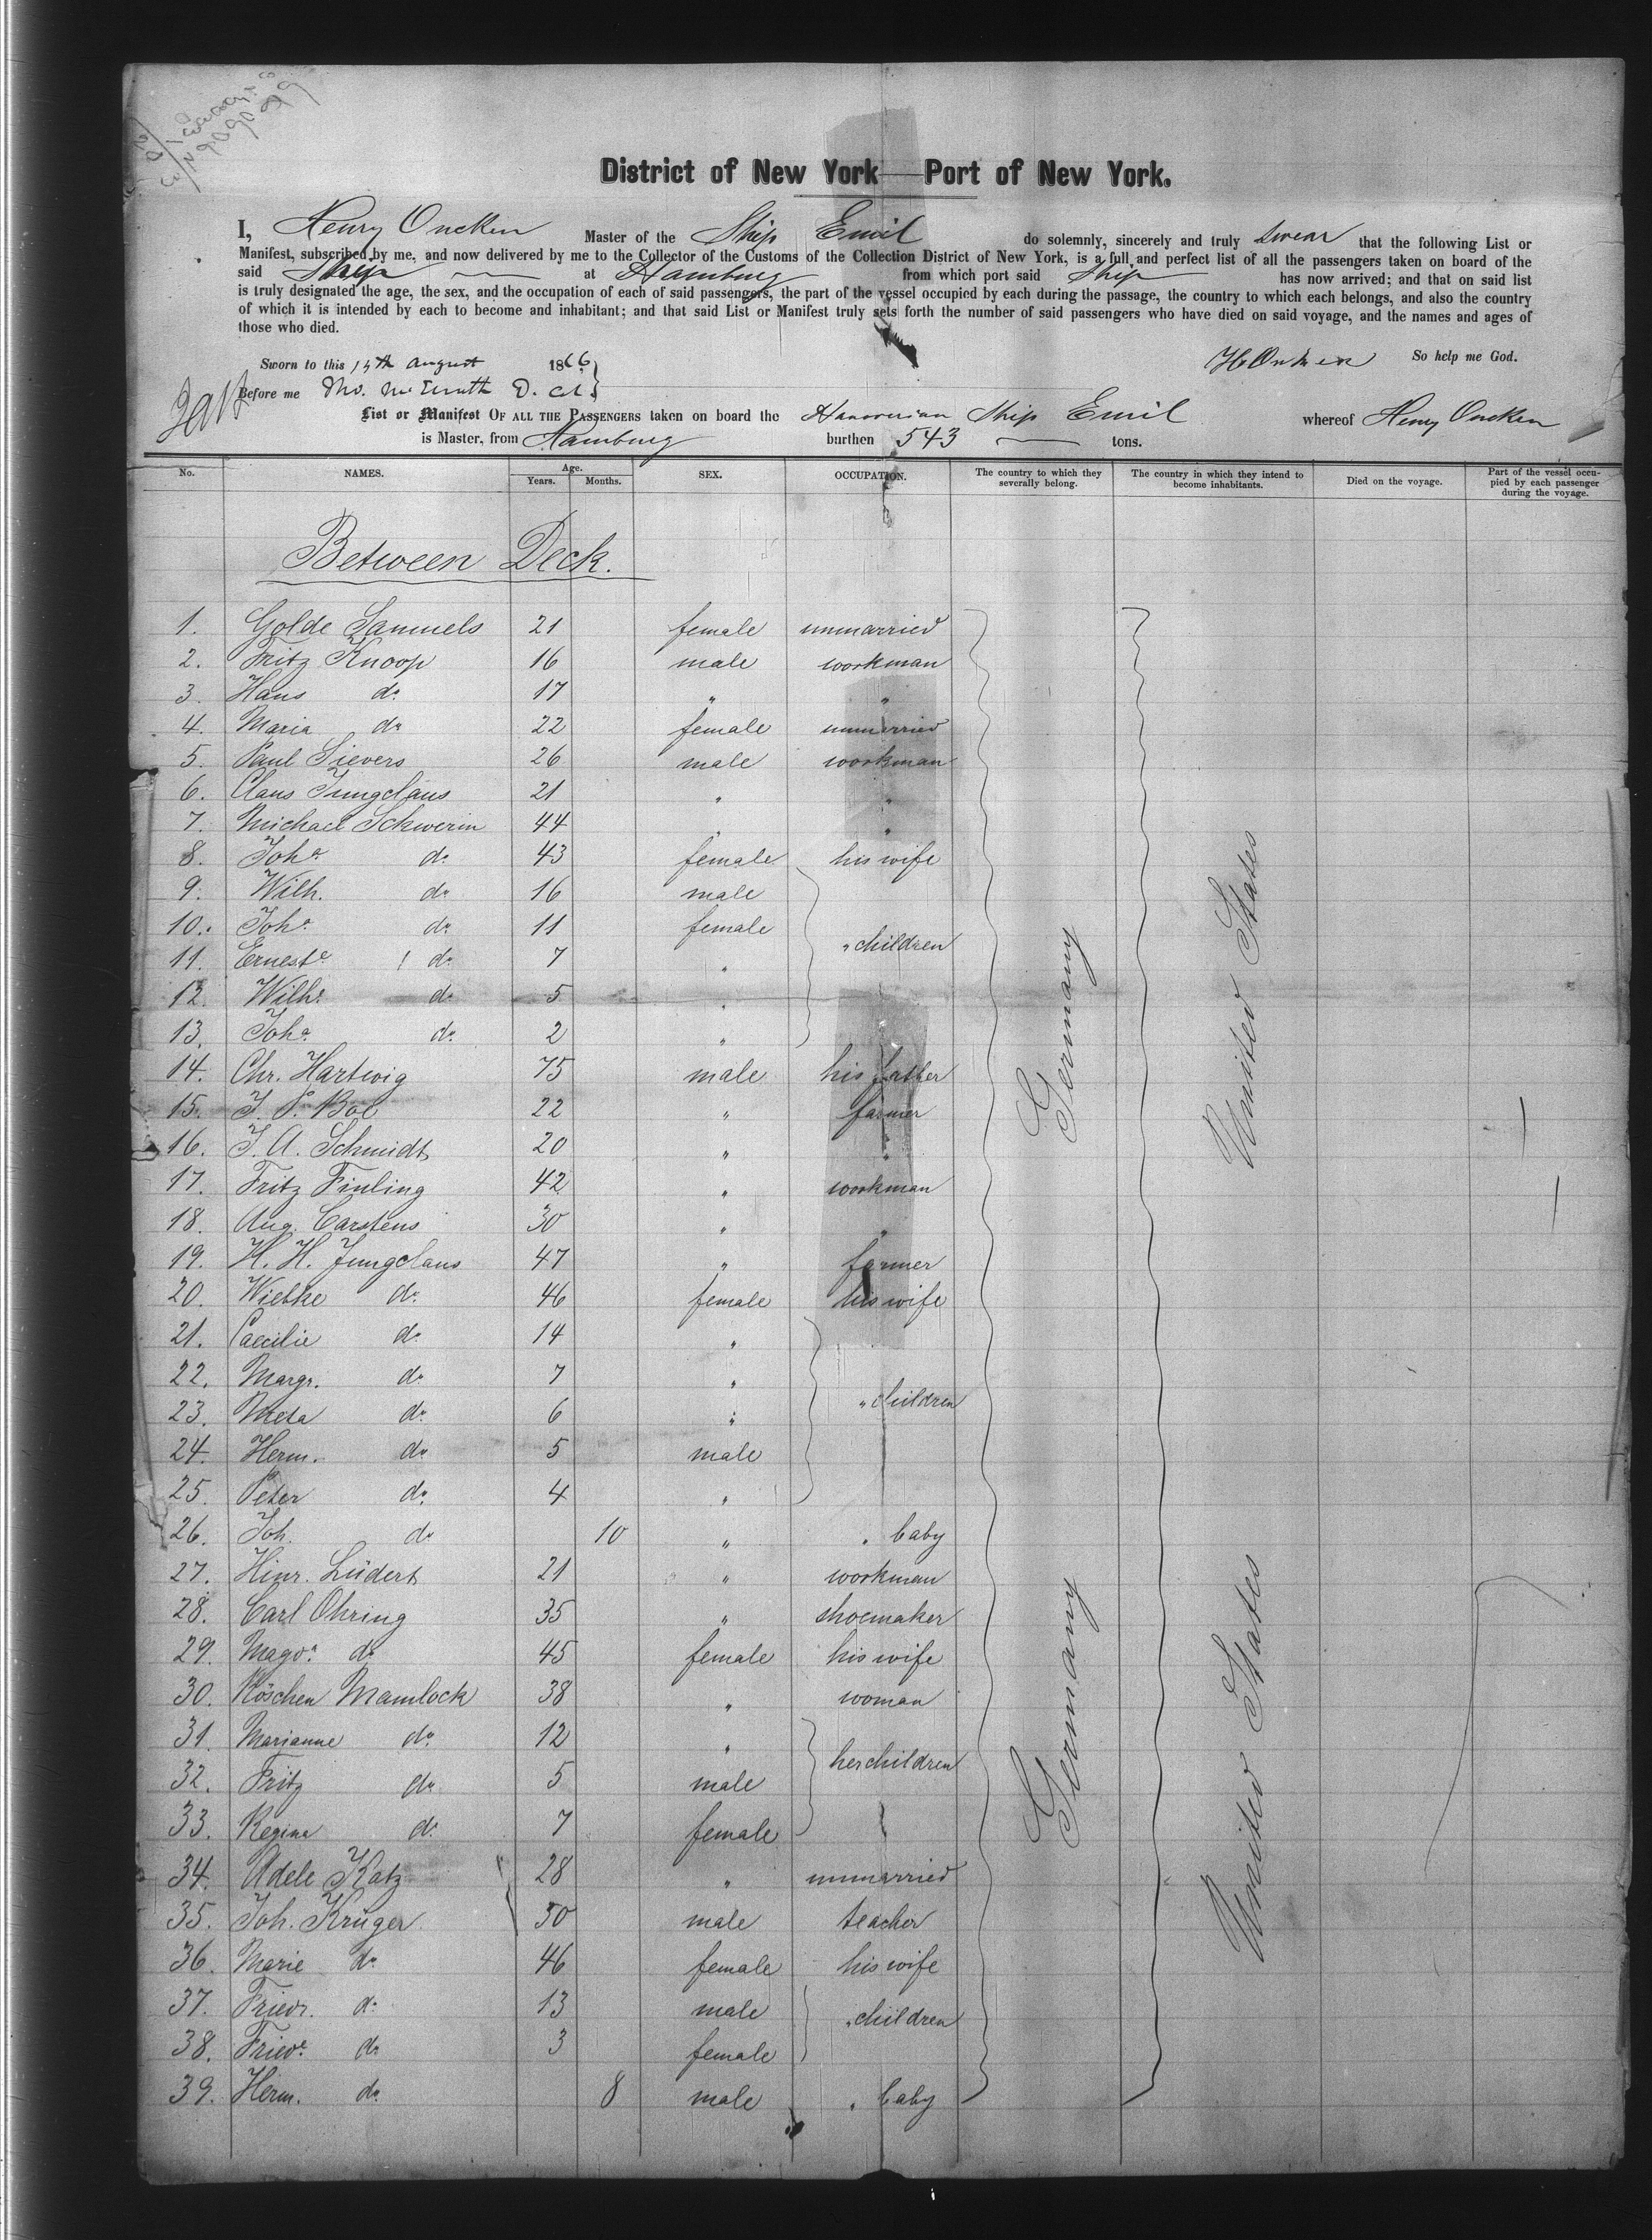 District of New York — Port of New York.
I, Henry Oncken Master of the Ship Emil do solemnly, sincerely and truly swear that the following List or
Manifest, subscribed by me, and now delivered by me to the Collector of the Customs of the Collection District of New York, is a full and perfect list of all the passengers taken on board of the
said Ship at Hamburg from which port said Ship has now arrived; and that on said list
is truly designated the age, the sex, and the occupation of each of said passengers, the part of the vessel occupied by each during the passage, the country to which each belongs, and also the country
of which it is intended by each to become and inhabitant; and that said List or Manifest truly sets forth the number of said passengers who have died on said voyage, and the names and ages of
those who died.
Sworn to this 15th August 1866 H Oncken So help me God.
Before me
List or Manifest OF ALL THE PASSENGERS taken on board the Hanoverian Ship Emil whereof Henry Oncken
is Master, from Hamburg burthen 543 tons.
No. NAMES. Age. Years. Months. SEX. OCCUPATION. The country to which they severally belong. The country in which they intend to become inhabitants. Died on the voyage. Part of the vessel occupied by each passenger during the voyage.
Between Deck.
1. Golde Samuels 21 female unmarried
2. Fritz Knoop 16 male workman
3. Hans do 17 " "
4. Maria do 22 female unmarried
5. Paul Sievers 26 male workman
6. Claus Jungclaus 21 " "
7. Michael Schwerin 44 " "
8. Joha do 43 female his wife
9. Wilh. do 16 male
10. Joha do 11 female
11. Erneste do 7 " " children
12. Wilhe do 5 "
13. Joha do 2 "
14. Chr. Hartwig 75 male his father
15. J. P. Boe 22 " farmer
16. J. A. Schmidt 20 " "
17. Fritz Finling 42 " workman
18. Aug. Carstens 30 " "
19. H. H. Jungclaus 47 " farmer
20. Wiebke do 46 female his wife
21. Caecilie do 14 "
22. Margr. do 7 "
23. Meta do 6 " " children
24. Herm. do 5 male
25. Peter do 4 "
26. Joh. do 10 " " baby
27. Hinr. Lüders 21 " workman
28. Carl Ohring 35 " shoemaker
29. Magda do 45 female his wife
30. Röschen Mamlock 38 " woman
31. Marianne do 12 "
32. Fritz do 5 male her children
33. Regina do 7 female
34. Adele Katz 28 " unmarried
35. Joh. Krüger 50 male teacher
36. Marie do 46 female his wife
37. Friedr. do 13 male " children
38. Friede do 3 female
39. Herm. do 8 male " baby
Germany
United States
Germany
United States